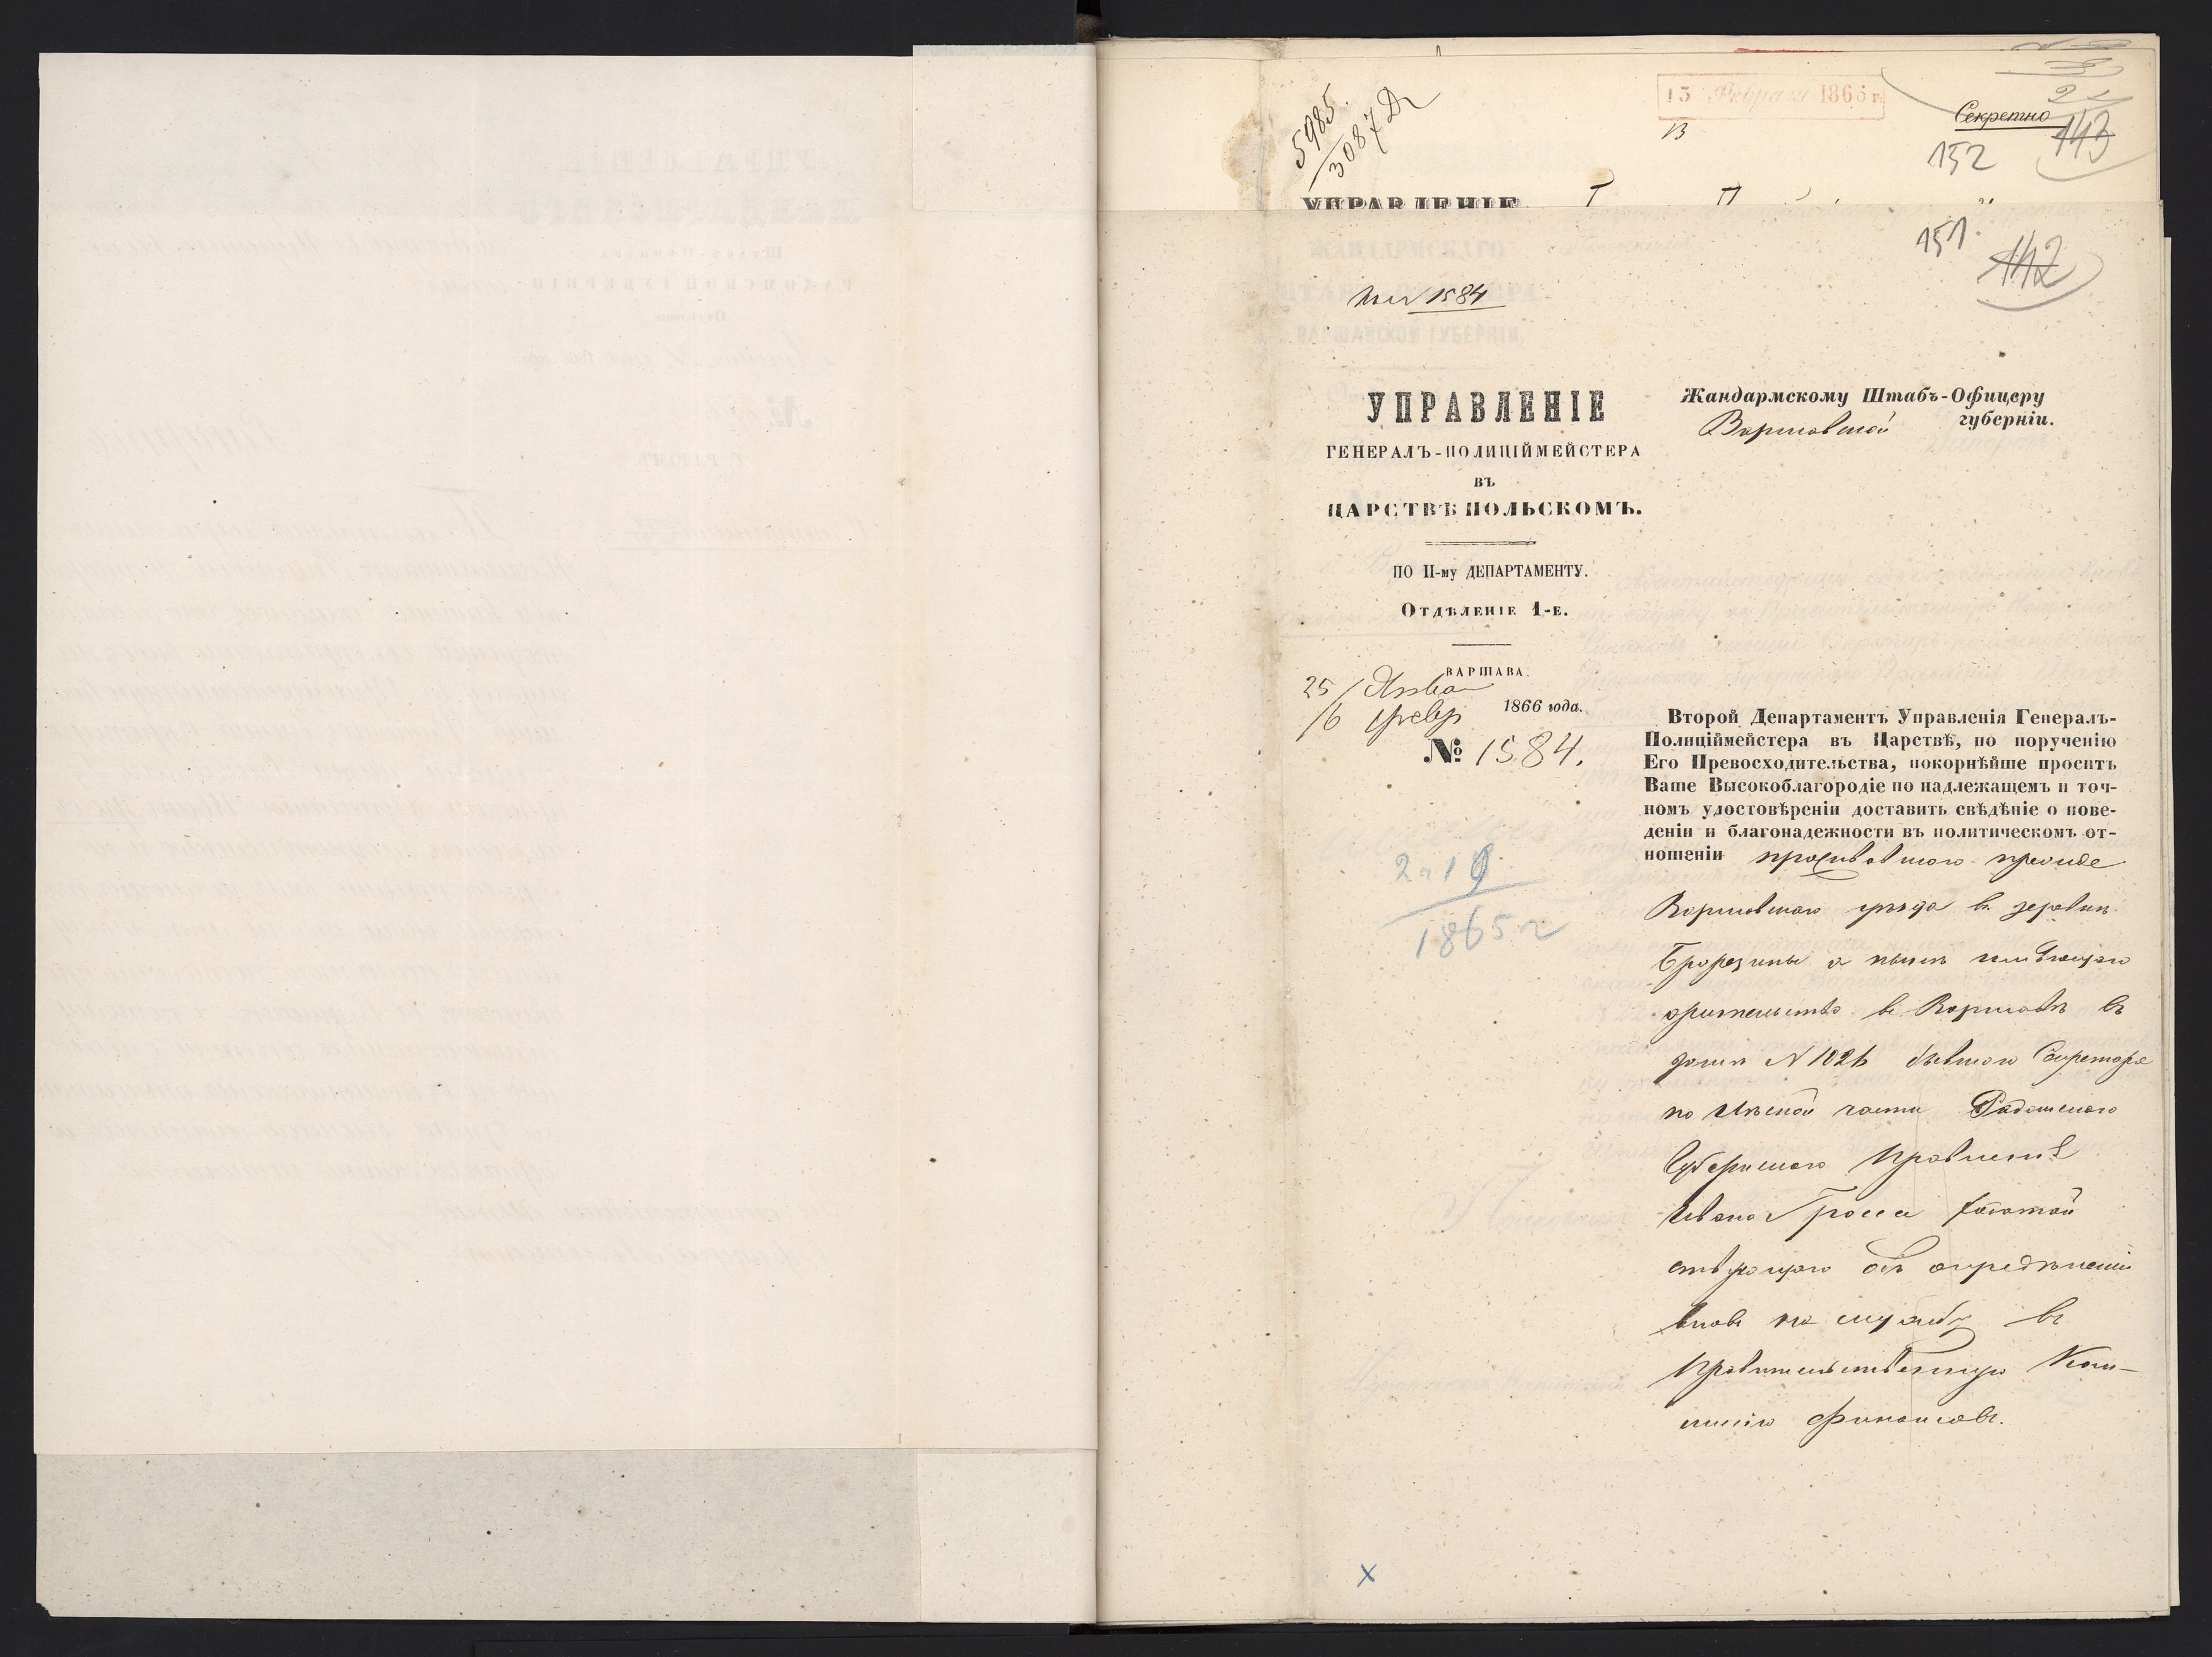 5985.
3087
13 Февраля 1866 г.
Секретно
143
152
УПРАВЛЕНІЕ
151.
142
1584
УПРАВЛЕНІЕ
ГЕНЕРАЛЪ-ПОЛИЦІЙМЕЙСТЕРА
ВЪ
ЦАРСТВѢ ПОЛЬСКОМЪ.
ПО II-му ДЕПАРТАМЕНТУ.
Отдѣленіе 1-е.
ВАРШАВА.
25/6 Янва/Февр 1866 года.
№ 1584.
Жандармскому Штабъ-Офицеру
Варшавской губерніи.
Второй Департаментъ Управленія Генералъ-
Полиціймейстера въ Царствѣ, по порученію
Его Превосходительства, покорнѣйше проситъ
Ваше Высокоблагородіе по надлежащемъ и точ-
номъ удостовѣреніи доставить свѣдѣніе о пове-
деніи и благонадежности въ политическомъ от-
ношеніи проживавшаго прежде
Варшавскаго уѣзда въ деревнѣ
а нынѣ имѣющаго
жительство въ Варшавѣ въ
домѣ N 1026 бывшаго Секретаря
по Лѣсной части Радомскаго
Губернскаго Правленія
Ивана Гросса ходатай
ствующаго объ опредѣленіи
вновь на службу въ
Правительственную Ком-
мисію Финансовъ.
1865 г